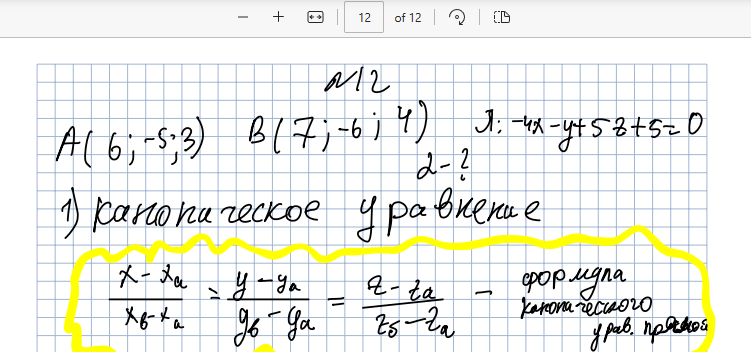 12 of 12
N12
A(6;-5;3) B(7;-6;4) Л: -4x-y+5z+5=0
α-?
1) каноническое уравнение
x-xa / xb-xa = y-ya / yb-ya = z-za / zb-za - формула
канонического
урав. прямой